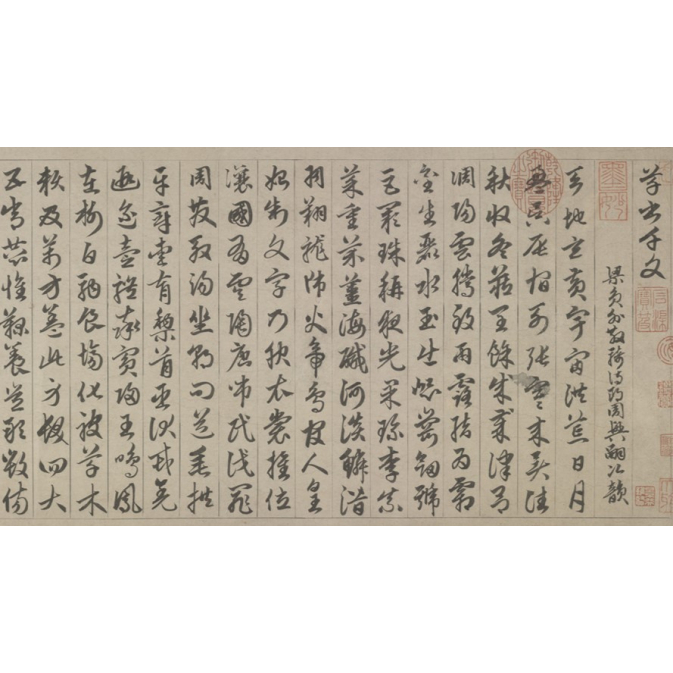 草書千文
梁員外散騎侍郎周興嗣次韻
天地玄黃宇宙洪荒日月
盈昃辰宿列張寒來暑往
秋收冬藏閏餘成歲律呂
調陽雲騰致雨露結為霜
金生麗水玉出崑崗劍號
巨闕珠稱夜光果珍李柰
菜重芥薑海鹹河淡鱗潛
羽翔龍師火帝鳥官人皇
始制文字乃服衣裳推位
讓國有虞陶唐弔民伐罪
周發殷湯坐朝問道垂拱
平章愛育黎首臣伏戎羌
遐邇壹體率賓歸王鳴鳳
在樹白駒食場化被草木
賴及萬方蓋此身髮四大
五常恭惟鞠養豈敢毀傷